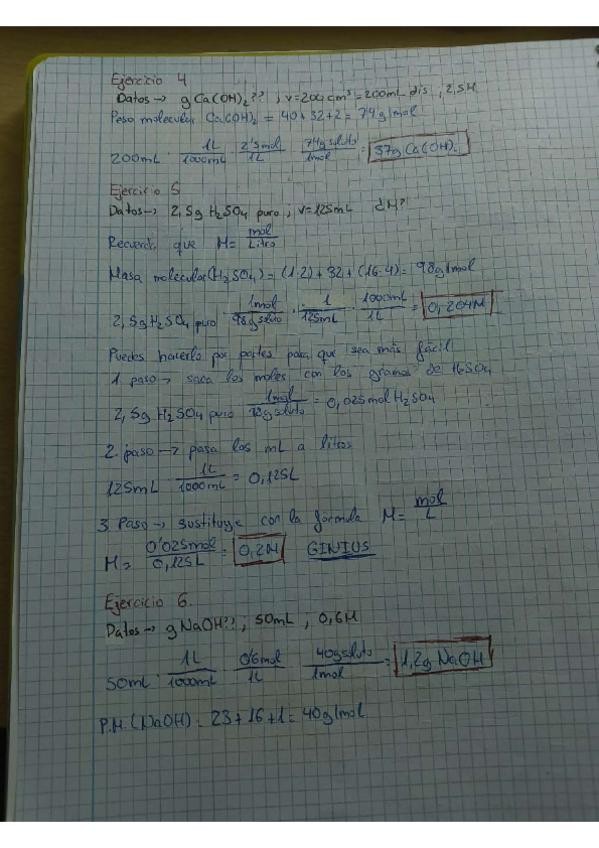 Ejercicio 4
Datos → g Ca(OH)₂?? ; v=200cm³=200mL dis ; 2,5M
Peso molecular Ca(OH)₂ = 40+32+2 = 74g/mol
200mL · 1L/1000mL · 2'5mol/1L · 74g soluto/1mol = 37g Ca(OH)₂
Ejercicio 5
Datos → 2,5g H₂SO₄ puro ; v=125mL ¿M?
Recuerda que M= mol/Litro
Masa molecular(H₂SO₄) = (1·2)+32+(16·4) = 98g/mol
2,5g H₂SO₄ puro · 1mol/98g soluto · 1/125mL · 1000mL/1L = 0,204M
Puedes hacerlo por partes para que sea más fácil
1. paso → saca los moles con los gramos de H₂SO₄
2,5g H₂SO₄ puro 1mol/98g soluto = 0,025mol H₂SO₄
2. paso → pasa los mL a litros
125mL · 1L/1000mL = 0,125L
3. Paso → sustituye con la fórmula M= mol/L
M= 0'025mol/0,125L = 0,2M GINIUS
Ejercicio 6.
Datos → g NaOH??; 50mL ; 0,6M
50mL · 1L/1000mL · 0'6mol/1L · 40g soluto/1mol = 1,2g NaOH
P.M.(NaOH) = 23+16+1 = 40g/mol